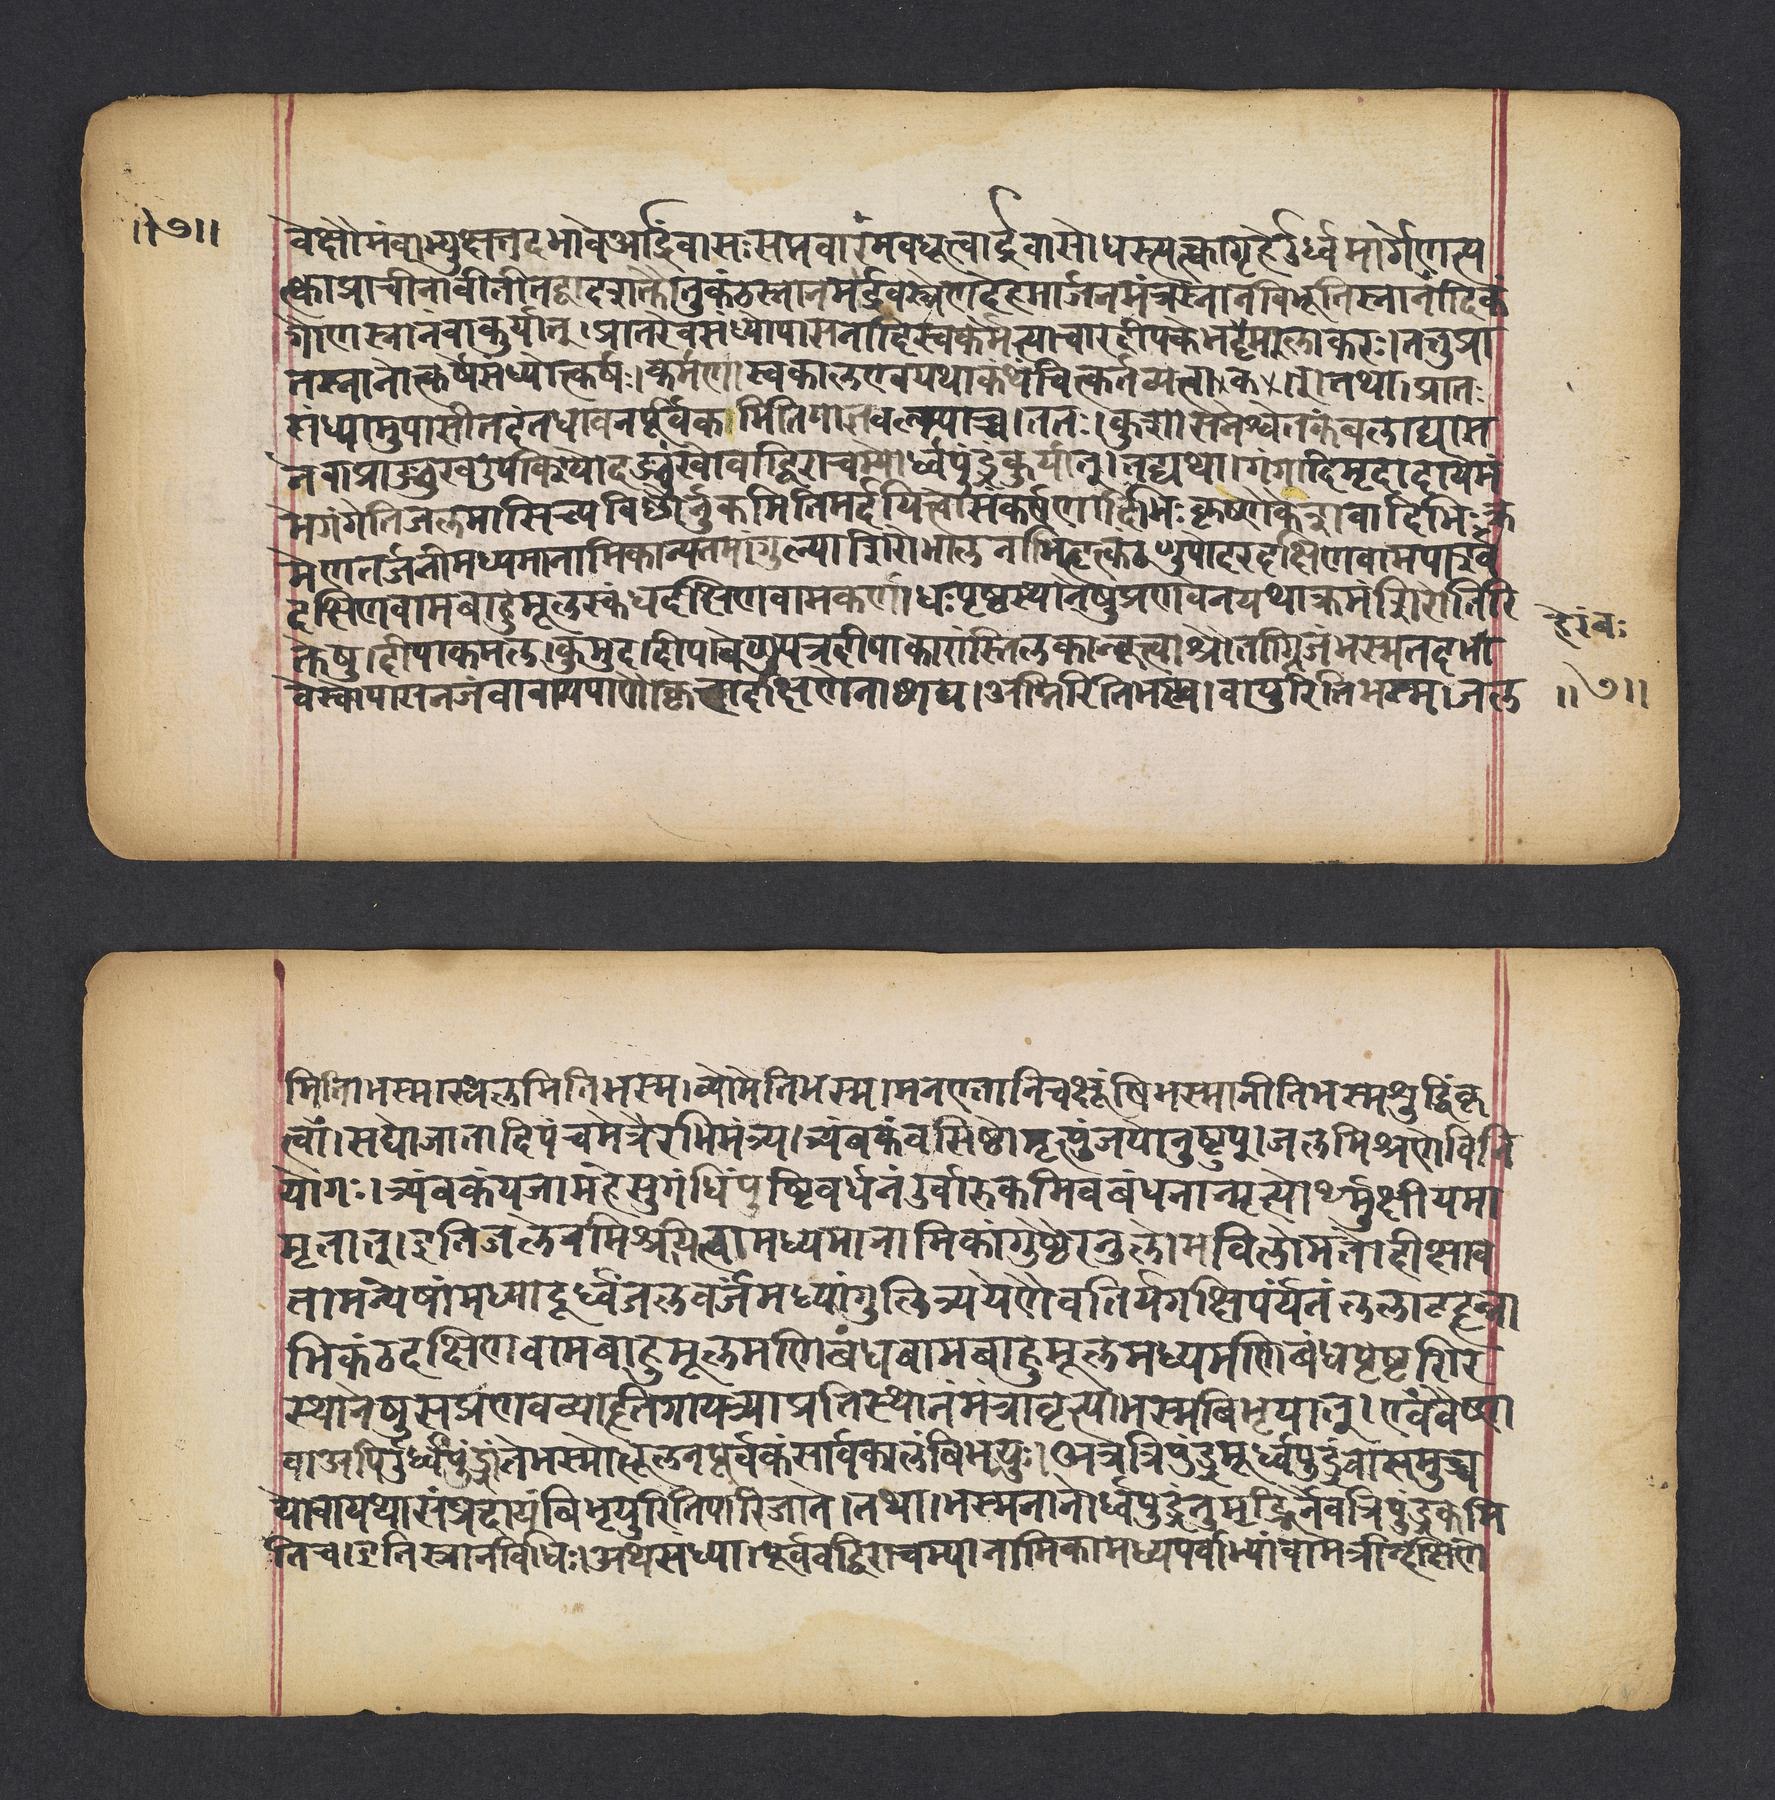 ॥७॥
वक्षौमंवाभ्युक्षततदभावेआर्द्रंवासःसप्तवारंमवधूत्वार्द्रवासोधस्त्यत्क्वागृहेउर्ध्वमार्गेणत्य
त्क्वाप्राचीनावीतीतिद्वादशाशक्तौतुकंठस्नानमर्द्रवस्त्रेणदेहमार्जनमंत्रस्नानविभूतिस्नानादिकं
गौणस्नानंवाकुर्यात्।प्रातरेवसंध्योपासनादिस्वकर्मेत्याचारदीपकमदृमालाकरः।नतुप्रा
तःस्नानोत्कर्षेसंध्योत्कर्षः।कर्मणास्वकालएवयथाकथंचित्कर्तव्यत्वात्।तथा।प्रातः
संध्यामुपासीतदंतधावनपूर्विकामितियाज्ञवल्क्याच्च।ततः।कुशासनश्वेतकंबलाद्यास
नेवाप्राङ्मुखउपविश्योदङ्मुखोवाद्विराचम्योर्ध्वपुंड्रंकुर्यात्।तद्यथा।गंगादिमृदादायइमं
मेगंगेतिजलमासिच्यविष्णोर्नुकमितिमर्दयित्वासंकर्षणादिभिःकृष्णेकेशवादिभिःक्र
मेणतर्जनीमध्यमानामिकान्यतमांगुल्याशिरोभालनाभिहृत्कंठपुदोदरदक्षिणवामपार्श्व
दक्षिणवामबाहुमूलस्कंधदक्षिणवामकर्णाधःपृष्ठस्थानेषुप्रणवेनयथाक्रमंशिरोतिरि
क्तेषु।दीपाकमल।कुमुददीपवेणुपत्रदीपाकारांस्तिलकान्कृत्वाश्रौताग्निजंभस्मतदभा
हेरंबः
वेस्वोपासनजंवावामपाणौकृत्वादक्षिणेनाच्छाद्य।अग्निरितिभस्म।वायुरितिभस्म।जल
॥७॥
मितिभस्म।स्थलमितिभस्म।व्योमेतिभस्म।मनएतानिचक्षूंषिभस्मानीतिभस्मशुद्धिंकृ
त्वा।सद्योजातादिपंचमंत्रैरभिमंत्र्य।त्र्यंबकंवसिष्ठोमृत्युंजयोनुष्टुप्।जलमिश्रणेविनि
योगः।त्र्यंबकंयजामहेसुगंधिंपुष्टिवर्धनंउर्वारुकमिवबंधनान्मृत्योर्मुक्षीयमा
मृतात्।इतिजलेनमिश्रयित्वामध्यमानामिकांगुष्ठैरनुलोमविलोमतोदीक्षाव
तामन्येषांमध्याह्नादूर्ध्वंजलवर्जंमध्यांगुलित्रयेणैवतिर्यगक्षिपर्यंतंललाटहृन्ना
भिकंठदक्षिणवामबाहुमूलमणिबंधवामबाहुमूलमध्यमणिबंधपृष्टशिर
स्थानेषुसप्रणवव्याहृतिगायत्र्याप्रतिस्थानंमंत्रावृत्त्याभस्मबिभृयात्।एवंवैष्ण
वाअपिर्उर्ध्वपुंड्रांतेभस्मोद्धूलनपूर्वकंसार्वकालंबिभृयुः।अत्रत्रिपुंड्रमूर्ध्वपुंड्रंवासमुच्च
योवायथासंप्रदायंबिभृयुरितिपारिजाते।तथा।भस्मनानोर्ध्वपुंड्रंतुमृद्भिर्नैवत्रिपुंड्रकमि
तिच।इतिस्नानविधिः।अथसंध्या।पूर्ववद्विराचम्यानामिकामध्यपर्वाभ्यांवामत्रीन्दक्षिणे